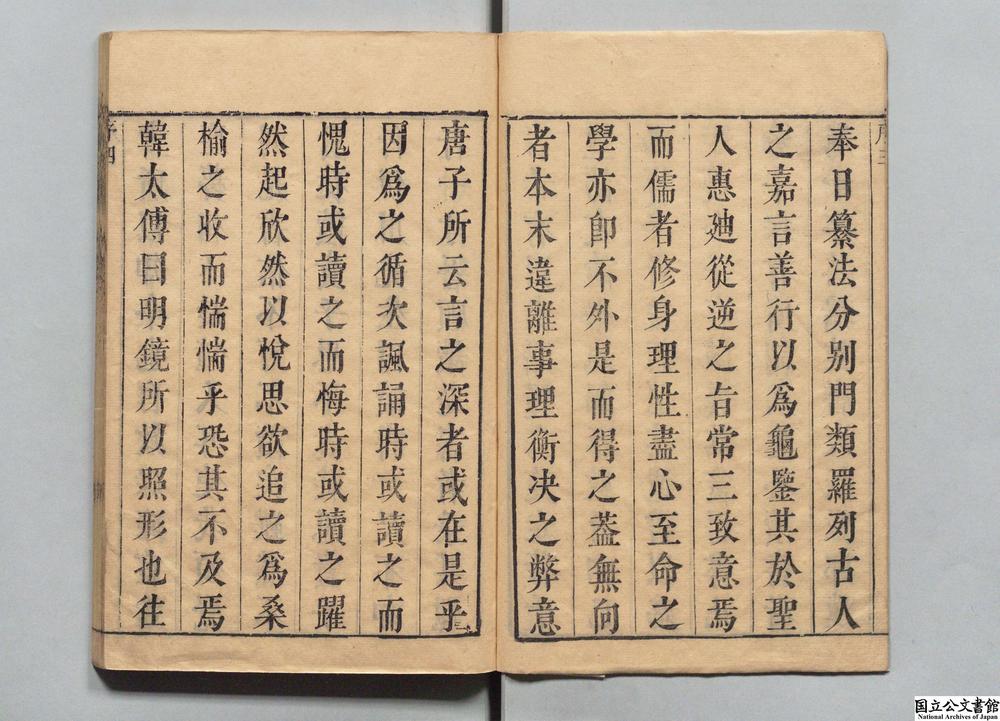 序三
奉日纂法分别門類羅列古人
之嘉言善行以爲龜鑒其於聖
人惠廸從逆之旨常三致意焉
而儒者修身理性盡心至命之
學亦卽不外是而得之葢無向
者本末違離事理衡决之弊意
唐子所云言之深者或在是乎
因爲之循次諷誦時或讀之而
愧時或讀之而悔時或讀之躍
然起欣然以悅思欲追之爲桑
榆之收而惴惴乎恐其不及焉
韓太傅曰明鏡所以照形也往
序四
国立公文書館
National Archives of Japan